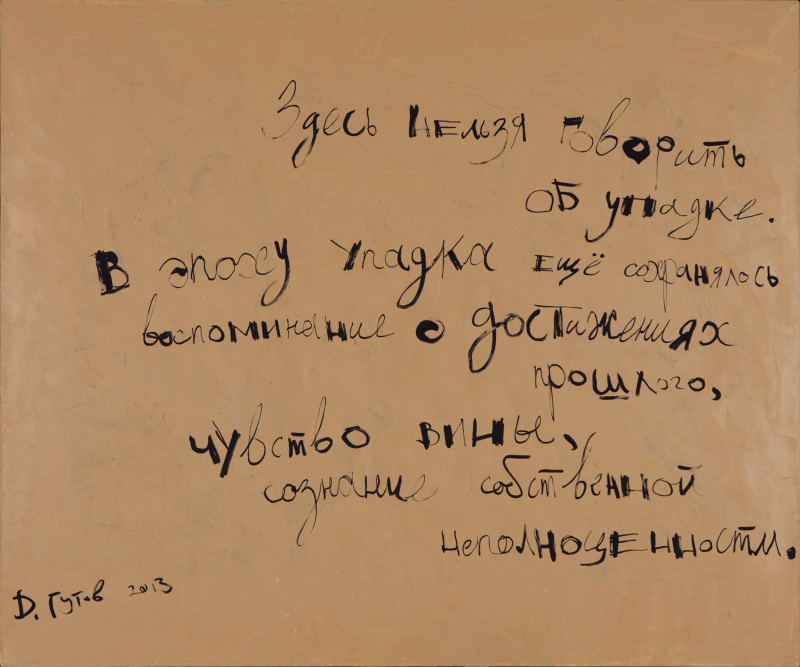 Здесь нельзя говорить
об упадке.
В эпоху упадка ещё сохранялось
воспоминание о достижениях
прошлого,
чувство вины,
сознание собственной
неполноценности.
Д. Гутов 2013